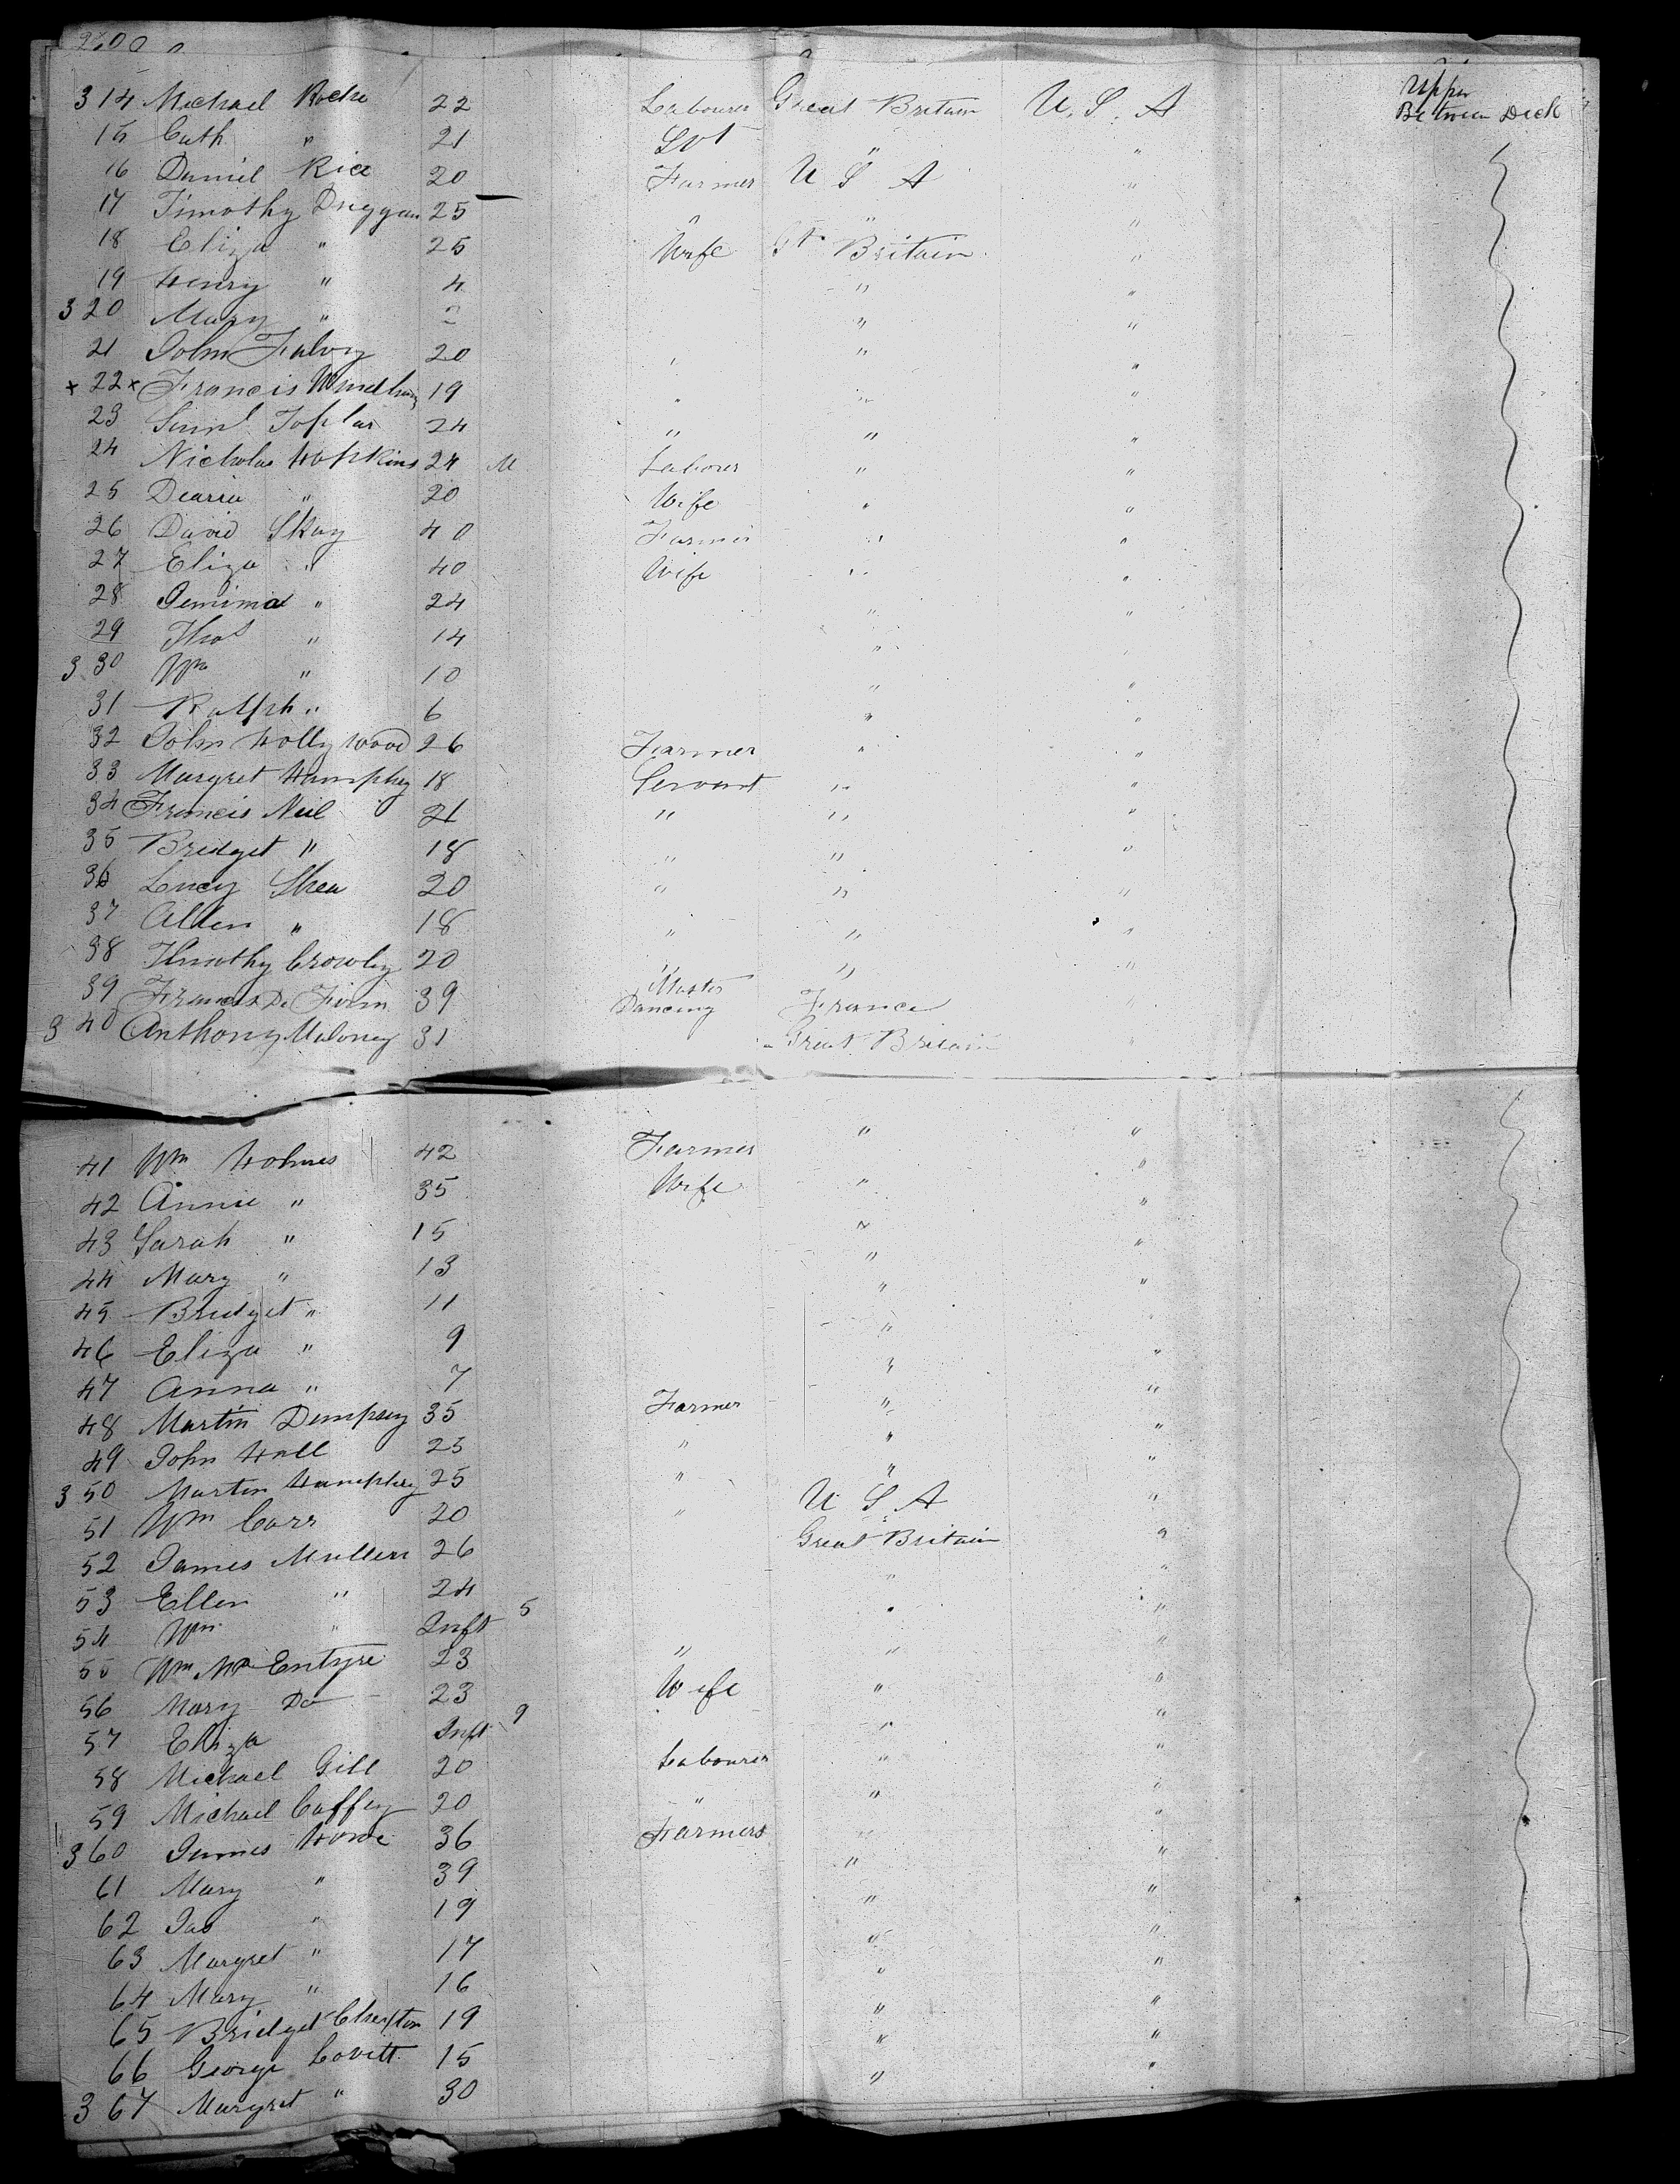 314 Michael Roche 22 Labourer Great Britain U.S.A Upper Between Deck
15 Cath " 21 Svt " "
16 Daniel Rice 20 Farmer U S A "
17 Timothy Duggan 25 " " "
18 Eliza " 25 Wife Gt Britain "
19 Henry " 4 " "
320 Mary " 2 " "
21 John Falvy 20 " " "
x 22 x Francis 19 " " "
23 Saml 24 " " "
24 Nicholas Hopkins 24 M Labourer " "
25 " 20 Wife " "
26 David Skay 40 Farmer " "
27 Eliza " 40 Wife " "
28 Jemima " 24 " "
29 Thos " 14 " "
330 Wm " 10 " "
31 Ralph " 6 " "
32 John Hollywood 26 Farmer " "
33 Margret Humphey 18 Servant " "
34 Francis Neil 21 " " "
35 Bridget " 18 " " "
36 Lucy Shea 20 " " "
37 " 18 " " "
38 Timothy Crowley 20 " " "
39 Francis De 39 Master Dancing France
340 Anthony Maloney 31 Great Britain "
41 Wm Holmes 42 Farmer " "
42 Annie " 35 Wife " "
43 Sarah " 15 " "
44 Mary " 13 " "
45 Bridget " 11 " "
46 Eliza " 9 " "
47 Anna " 7 " "
48 Martin Dempsey 35 Farmer " "
49 John Hall 25 " " "
350 Martin Humphey 25 " " "
51 Wm Carr 20 " U S A "
52 James Mullen 26 Great Britain "
53 Ellen " 24 " "
54 Wm " Inft 5 " "
55 Wm McEntyre 23 " " "
56 Mary Do 23 Wife " "
57 Eliza Inft 9 " "
58 Michael Gill 20 Labourer " "
59 Michael Caffey 20 " " "
360 James Howe 36 Farmers " "
61 Mary " 39 " "
62 Jas " 19 " "
63 Margret " 17 " "
64 Mary " 16 " "
65 Bridget 19 " "
66 George Lovett 15 " "
367 Margret " 30 " "